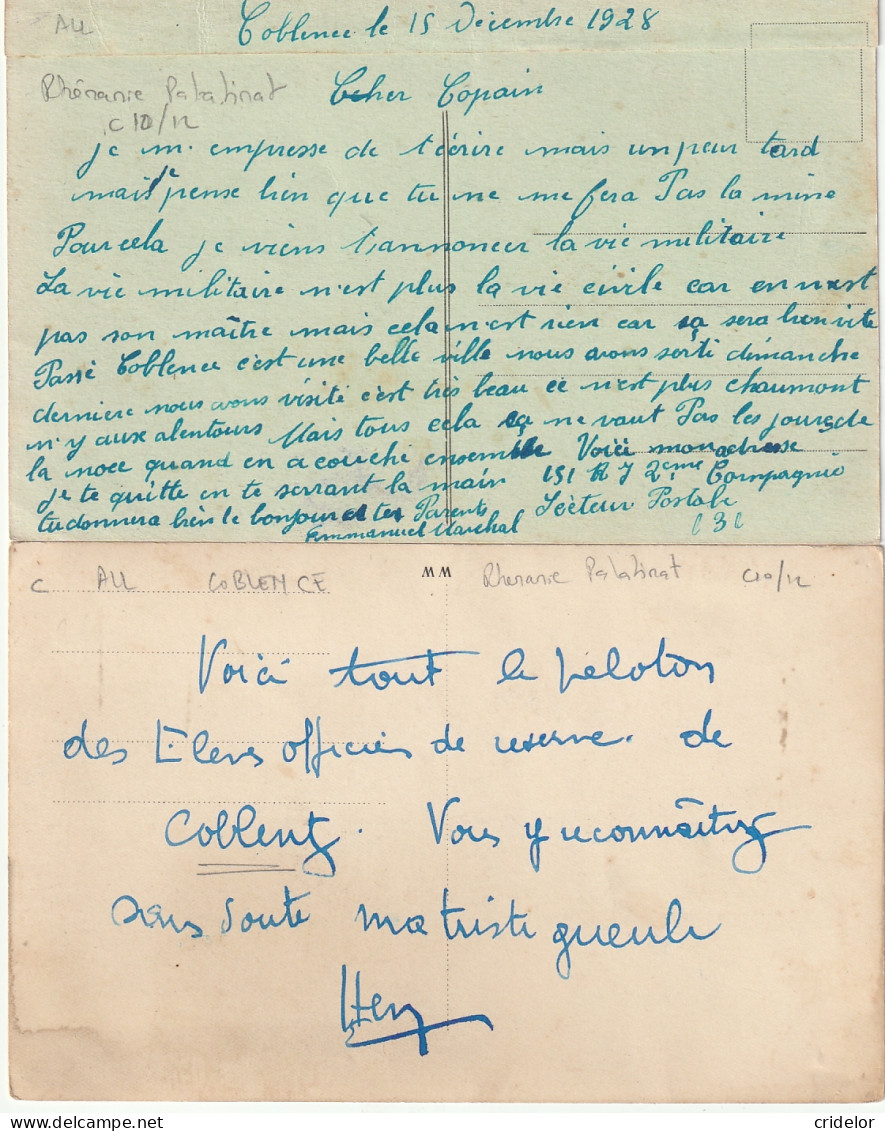 ALL
Coblence le 15 Décembre 1928
Rhénanie Palatinat
C10/12
Cher Copain
je m. empresse de t'écrire mais un peur tard
mais je pense bien que tu ne me fera Pas la mine
Pour cela je viens t'annoncer la vie militaire
La vie militaire n'est plus la vie civile car en n'est
pas son maître mais cela n'est rien car sa sera bien vite
Passé Coblence c'est une belle ville nous avons sorti dimanche
derniere nous avons visité c'est très beau ce n'est plus chaumont
n'y aux alentours Mais tous cela ne vaut Pas les jours de
la noce quand en a couché ensemble Voici mon adresse
je te quitte en te serrant la main 151 R I 2eme Compagnie
tu donnera bien le bonjour à tes Parents Secteur Postale
Emmanuel Marchal 131
C ALL COBLENCE WW Rhenanie Palatinat C10/12
Voici tout le peloton
des Eleves officiers de reserve. de
Coblentz. Vous y reconnaîtrez
sans doute ma triste gueule
Hery
cridelor